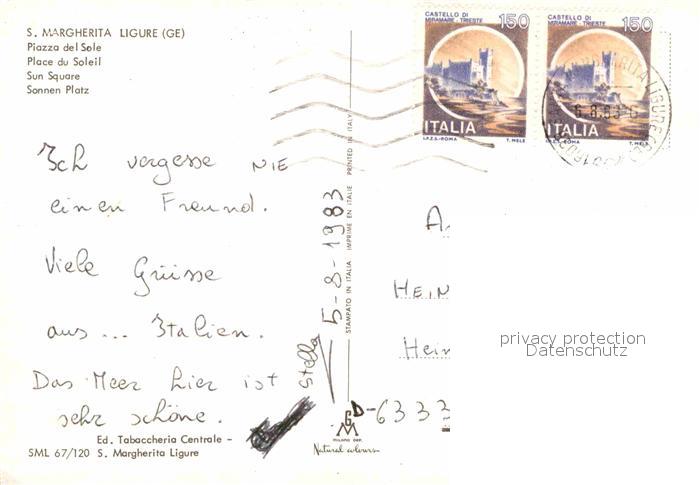 S. MARGHERITA LIGURE (GE)
Piazza del Sole
Place du Soleil
Sun Square
Sonnen Platz
CASTELLO DI
MIRAMARE - TRIESTE
150
ITALIA
I.P.Z.S.-ROMA T. MELE
CASTELLO DI
MIRAMARE - TRIESTE
150
ITALIA
I.P.Z.S.-ROMA T. MELE
Ich vergesse NIE
einen Freund.
Viele Grüsse
aus ... Italien.
Das Meer hier ist
sehr schöne.
Stella
5-8-1983
STAMPATO IN ITALIA IMPRIME EN ITALIE PRINTED IN ITALY
A
HEIN
Hein
privacy protection
Datenschutz
D-6333
GM
MILANO DEP.
Natural colours
Ed. Tabaccheria Centrale -
SML 67/120 S. Margherita Ligure